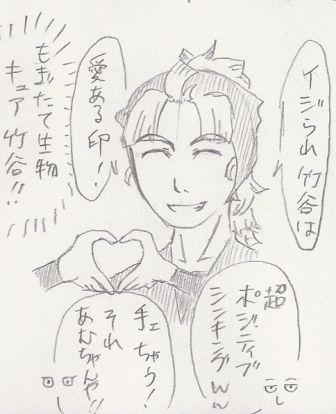 イジられ竹谷は
愛ある印！
もぎたて生物
キュア竹谷!!
超
ポジティブ
シンキングww
ちゃう！
それ
あむちゃんや!!